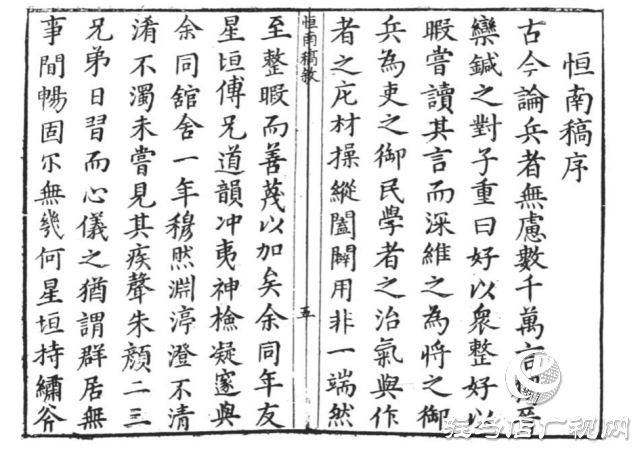 恒南稿序
古今論兵者無慮數千萬言晉
欒鍼之對子重曰好以衆整好以
暇嘗讀其言而深維之為將之御
兵為吏之御民學者之治氣與作
者之庀材操縱闔闢用非一端然
恒南稿敘
五
至整暇而善蔑以加矣余同年友
星垣傅兄道韻冲夷神檢凝邃與
余同舘舍一年穆然淵渟澄不清
淆不濁未嘗見其疾聲朱顔二三
兄弟日習而心儀之猶謂群居無
事間暢固尓無幾何星垣持繡斧
驻马店广视网